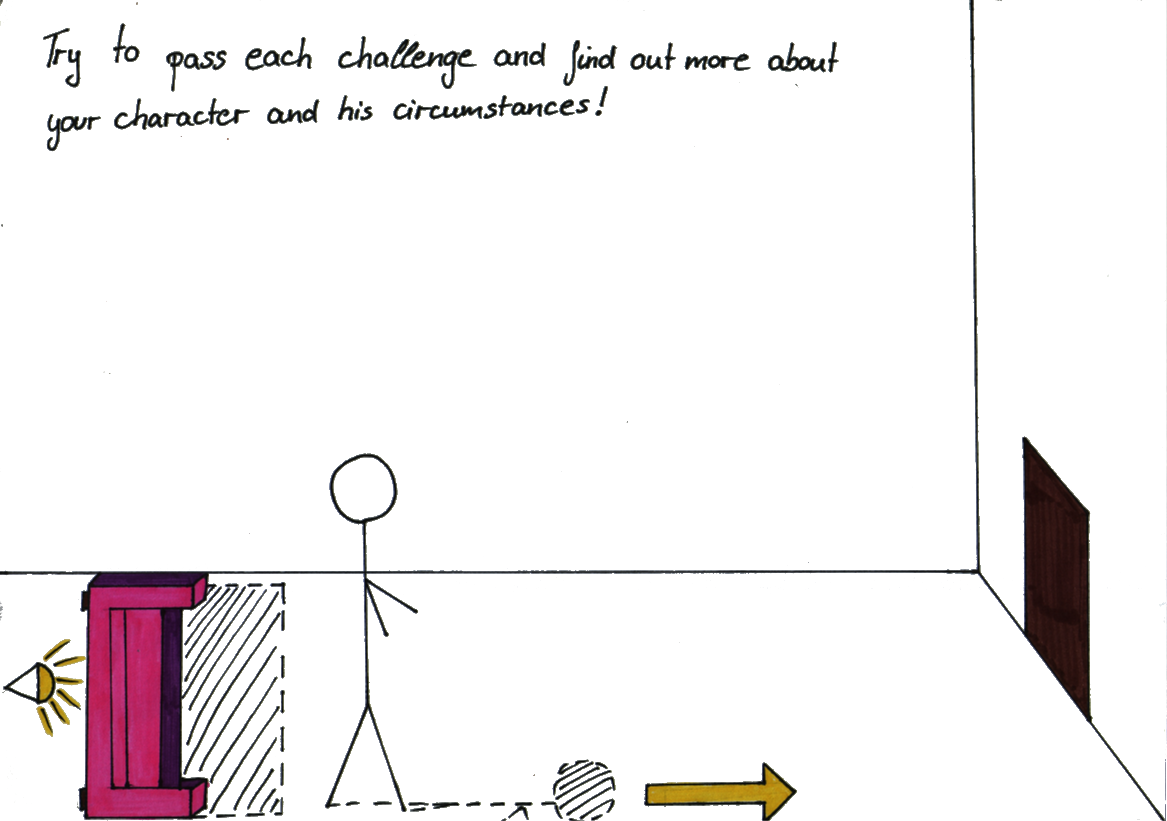 Try to pass each challenge and find out more about
your character and his circumstances!